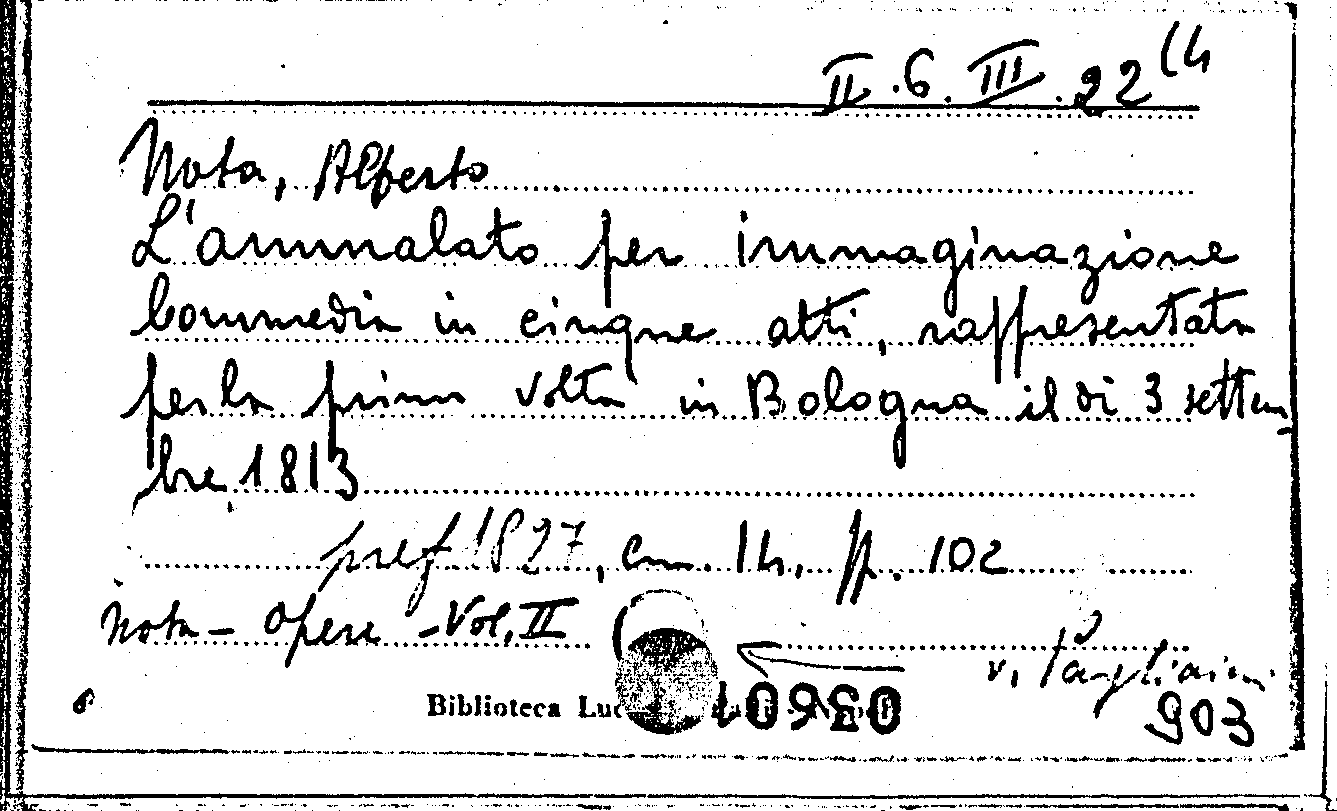 II.6.III.22(4
Nota, Alberto
L'ammalato per immaginazione
Commedia in cinque atti, rappresentata
per la prima volta in Bologna il dì 3 settem
bre 1813
pref 1827, cm. 14, pp. 102
Nota - Opere - Vol. II
v. Pagliaini
Biblioteca
903